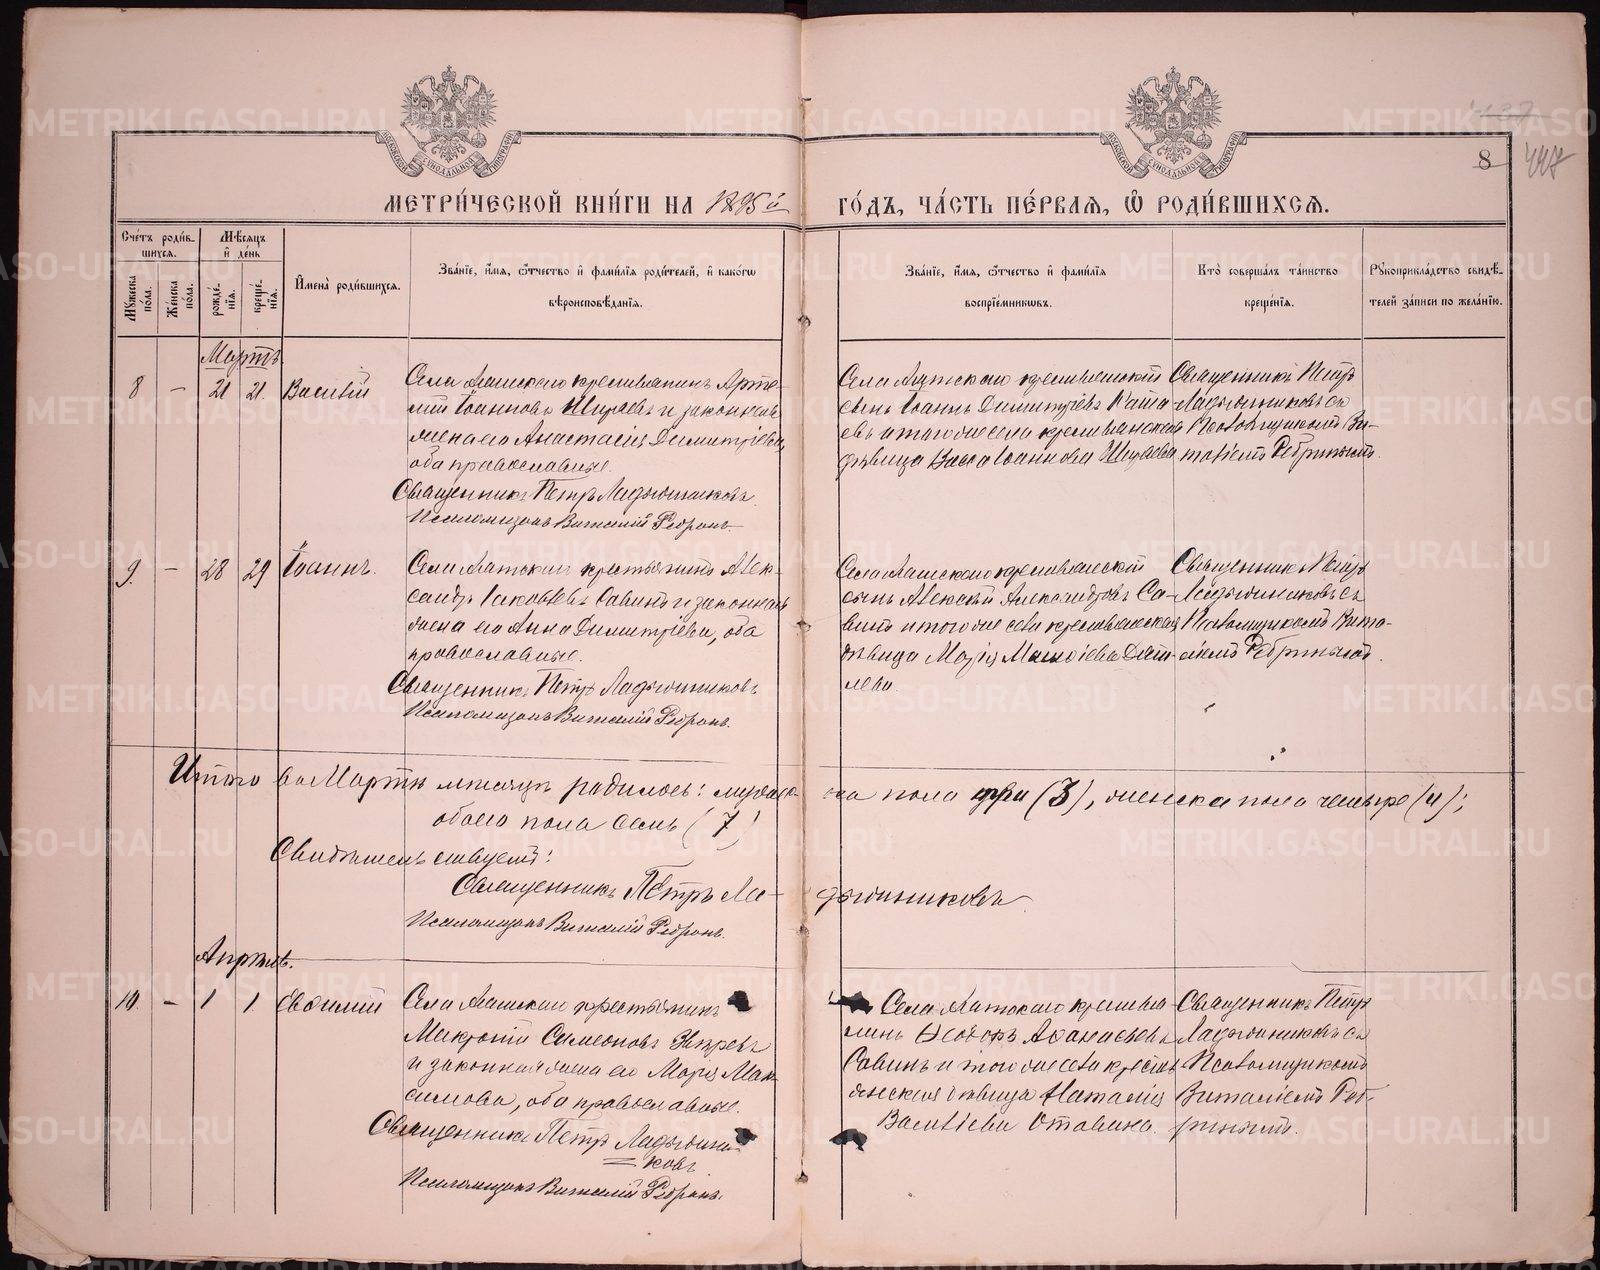 МОСКОВСКОЙ СѴНОДАЛЬНОЙ ТИПОГРАФІИ
МОСКОВСКОЙ СѴНОДАЛЬНОЙ ТИПОГРАФІИ
8
447
МЕТРИ́ЧЕСКОЙ КНИ́ГИ НА 1895й
ГО́ДЪ, ЧА́СТЬ ПЕ́РВАѦ, Ѡ РОДИ́ВШИХСѦ.
Сче́тъ роди́в-
шихся.
Мѣ́сяцъ
и҆ де́нь
Му́жеска по́ла.
Же́нска по́ла.
рожде́-
нїя.
креще́-
нїя.
И҆мена̀ роди́вшихся.
Зва́нїе, и҆́мя, ѻ҆́тчество и҆ фами́лїя роди́телей, и҆ како́гѡ
вѣроисповѣ́данїя.
Зва́нїе, и҆́мя, ѻ҆́тчество и҆ фами́лїя
воспрїе́мниковъ.
Кто̀ соверша́лъ та́инство
креще́нїя.
Рꙋкоприкла́дство свидѣ́-
телей за́писи по жела́нїю.
Мартъ.
8 — 21 21. Василій
Села Аятскаго крестьянинъ Арте-
мій Іоанновъ Ширяевъ и законная
жена его Анастасія Димитріева,
оба православные.
Священникъ Петръ Ладыжниковъ
Псаломщикъ Виталій Ребринъ.
Села Аятскаго крестьянскій
сынъ Іоаннъ Димитріевъ
евъ и того же села крестьянская
дѣвица Васса Іоаннова Ширяева
Священникъ Петръ
Ладыжниковъ съ
Псаломщикомъ Ви-
таліемъ Ребринымъ.
9. — 28 29 Іоаннъ.
Села Аятскаго крестьянинъ Алек-
сандръ Іаковлевъ Савинъ и законная
жена его Анна Димитріева, оба
православные.
Священникъ Петръ Ладыжниковъ
Псаломщикъ Виталій Ребринъ.
Села Аятскаго крестьянскій
сынъ Алексій Александровъ Са-
винъ и того же села крестьянская
дѣвица Марія
лева.
Священникъ Петръ
Ладыжниковъ съ
Псаломщикомъ Вита-
ліемъ Ребринымъ.
Итого въ Мартѣ мѣсяцѣ родилось: мужеска пола три (3), женска пола четыре (4);
обоего пола семь (7)
Свидѣтельствуетъ:
Священникъ Петръ Ладыжниковъ
Псаломщикъ Виталій Ребринъ.
Апрѣль.
10. — 1 1. Евѳимій
Села Аятскаго крестьянинъ
Макарій Симеоновъ Звѣревъ
и законная жена его Марія Мак-
симова, оба православные.
Священникъ Петръ Ладыжни-
ковъ
Псаломщикъ Виталій Ребринъ.
Села Аятскаго крестья-
нинъ Ѳеодоръ Аѳанасьевъ
Савинъ и того же села кресть-
янская дѣвица Наталія
Васильева
Священникъ Петръ
Ладыжниковъ съ
Псаломщикомъ
Виталіемъ Реб-
ринымъ.
METRIKI.GASO-URAL.RU